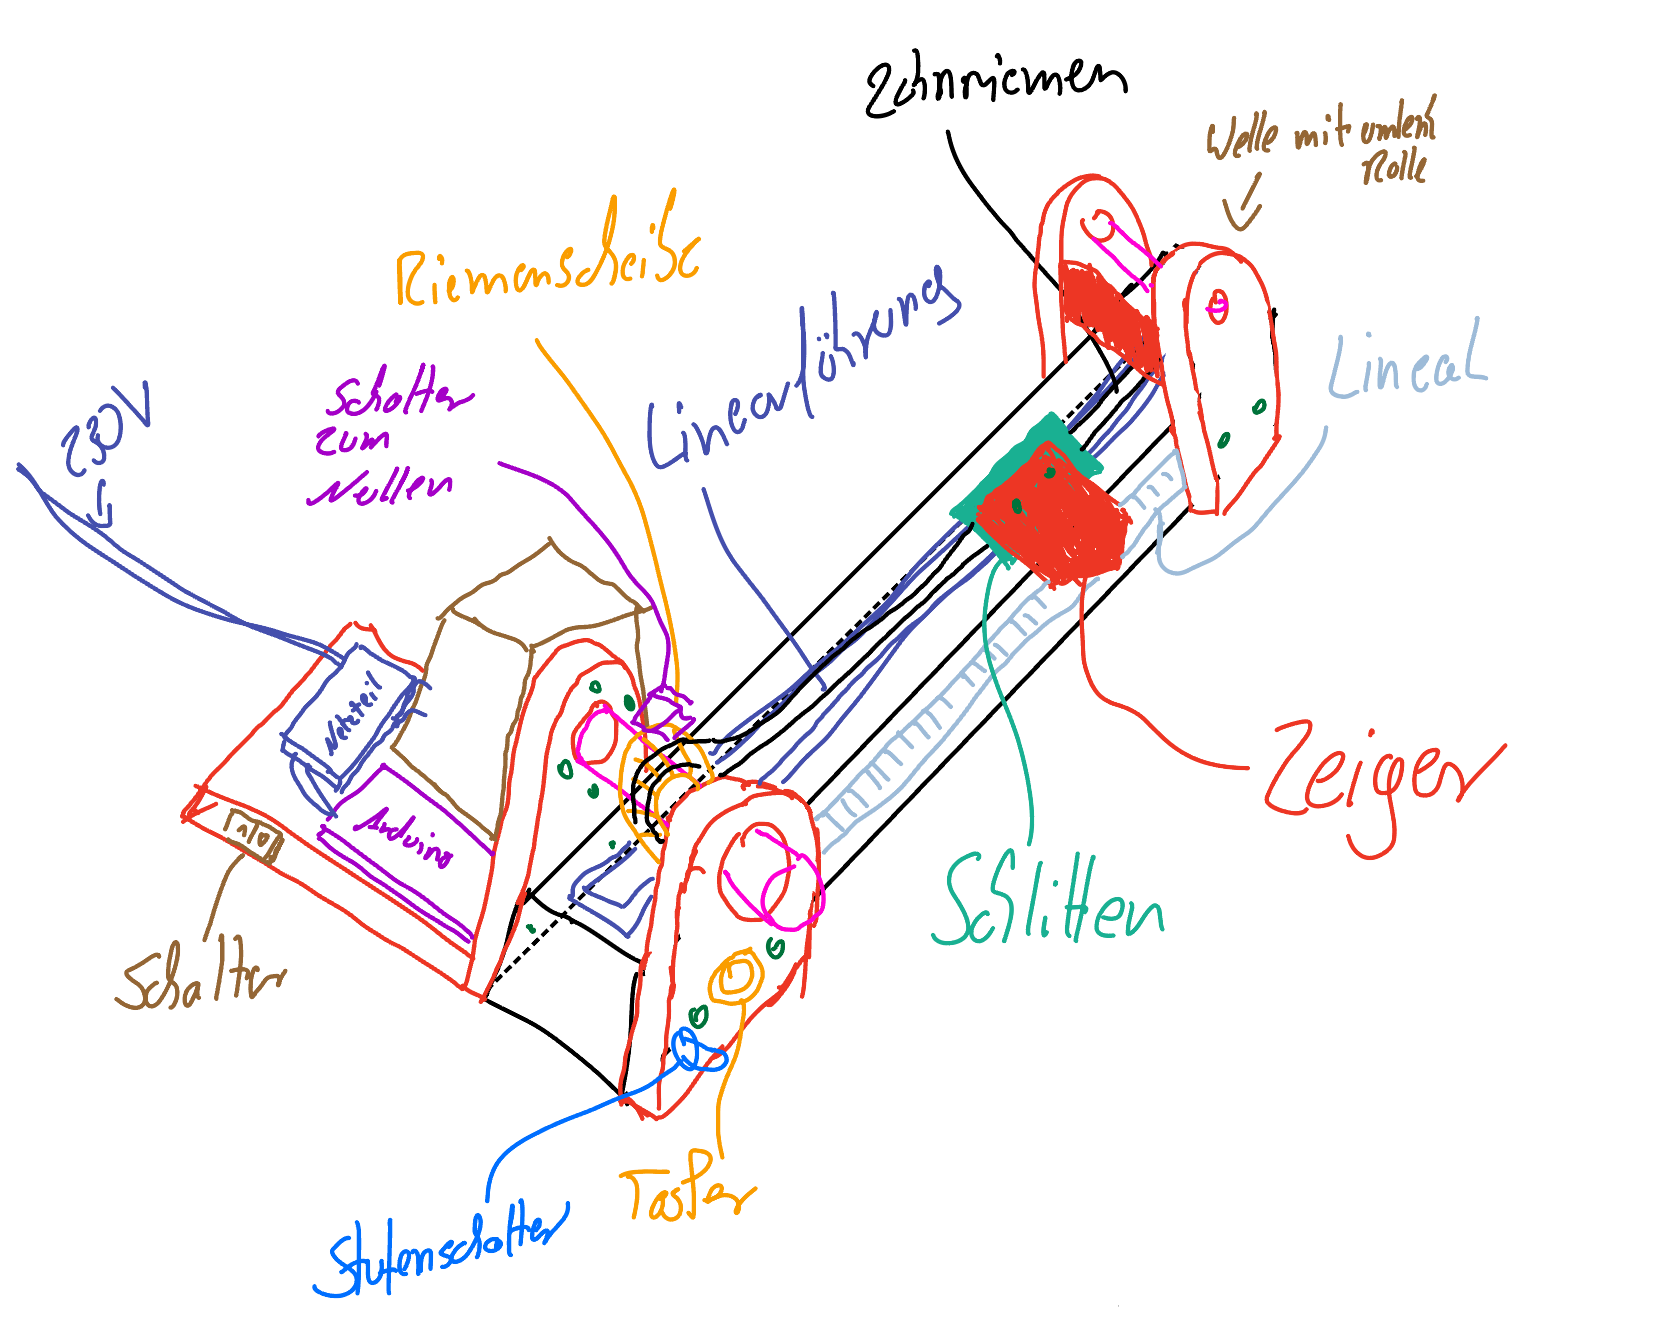 Zahnriemen
Welle mit umlenk
Rolle
Riemenscheibe
Linearführung
Lineal
Schalter
zum
Nullen
230V
Netzteil
Arduino
Schalter
Zeiger
Schlitten
Taster
Stufenschalter